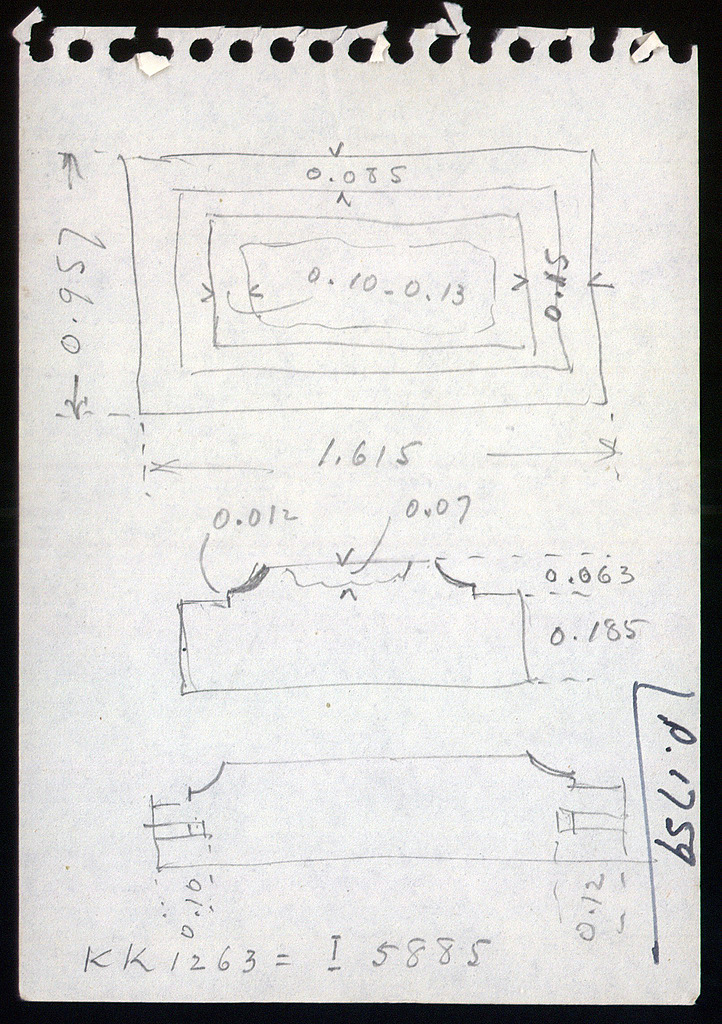 0.085
0.957
0.10-0.13
0.15
1.615
0.012
0.07
0.063
0.185
p. 1759
0.10
0.12
KK 1263 = I 5885